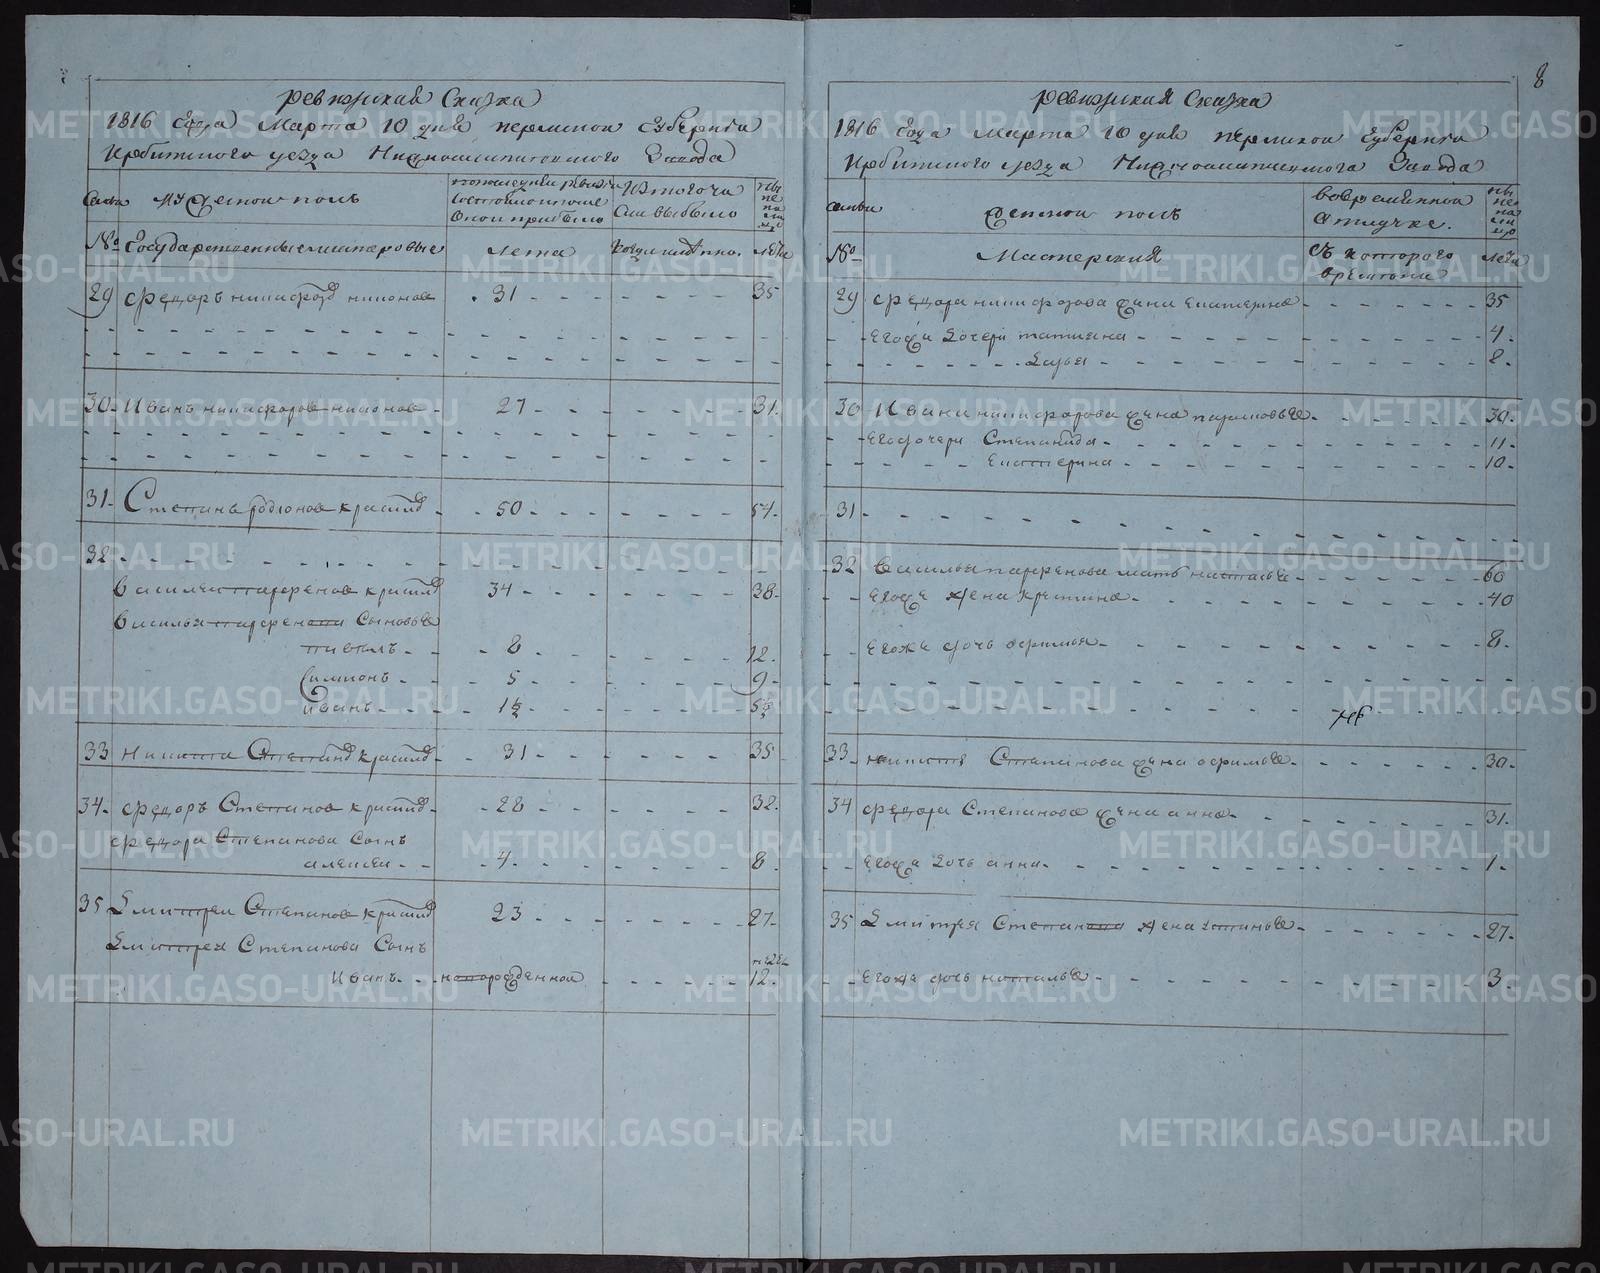 8
ревизская Сказка
1816 года Марта 10 дня пермской губернии
Ирбитского уезда Нижносинячихинского Завода
Семьи
мужескои полъ
Из того числа выбыло
ныне на лицо
№ Государственные мастеровые
лета
когда именно
лета
29 Федоръ никифоровъ никоновъ 31 35
30 Иванъ никифоровъ никоновъ 27 31
31 Степанъ родионовъ красиловъ 50 54
32
Василеи парфеновъ красиловъ 34 38
Василья парфенова Сыновья
павелъ 8 12
Симионъ 5 9
иванъ 1½ 5½
33 никита Степановъ красиловъ 31 35
34 Федоръ Степановъ красиловъ 28 32
Федора Степанова Сынъ
алексеи 4 8
35 Дмитреи Степановъ красиловъ 23 27
Дмитрея Степанова Сынъ
Иванъ новорожденнои 12
ревизская Сказка
1816 года Марта 10 дня пермской губернии
Ирбитского уезда Нижносинячихинского Завода
семьи
женскои полъ
вовременной отлучке
ныне на лицо
№
Мастерския
Съ которого времени
лета
29 Федора никифорова жена Екатерина 35
Егожа Дочери татияна 4
Дарья 8
30 Ивана никифорова жена парасковья 30
Его дочери Степанида 11
Екатерина 10
31
32 Василья парфенова мать наталья 60
Егоже жена кристина 40
Егоже дочь офимья 8
33 никиты Степанова жена офимья 30
34 Федора Степанова жена анна 31
Егожа Дочь анна 1
35 Дмитрея Степанова жена устинья 27
Егоже дочь наталья 3
METRIKI.GASO-URAL.RU